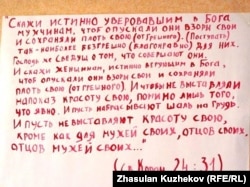 "Скажи истинно уверовавшим в Бога
мужчинам, чтоб опускали они взоры свои
и сохраняли плоть свою (от грешного). (Поступать)
так - наиболее безгрешно (благонравно) для них.
Господь же сведущ о том, что совершают они.
И скажи женщинам, истинно верующим в Бога,
чтоб опускали они взоры свои и сохраняли
плоть свою (от грешного). И чтобы не выставляли
напоказ красоту свою, помимо лишь того,
что явно. И пусть набрасывают шаль на грудь.
И пусть не выставляют красоту свою,
кроме как для мужей своих, отцов своих,
отцов мужей своих..."
(св. Коран, 24:31)
Zhasulan Kuzhekov (RFE/RL)